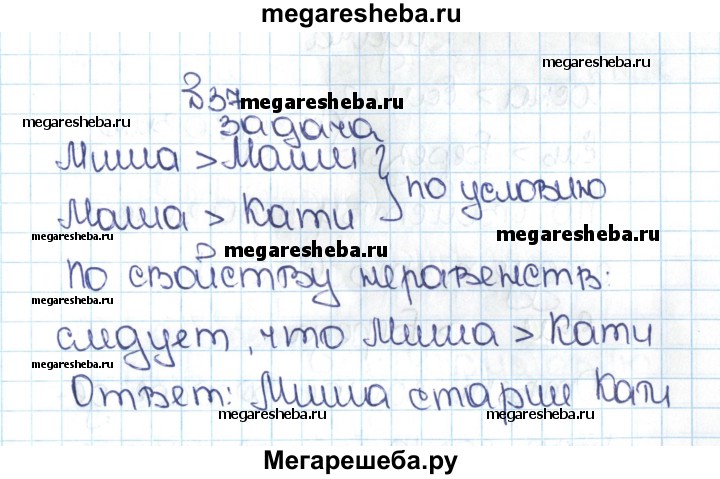 megaresheba.ru
megaresheba.ru
337 megaresheba.ru
megaresheba.ru задача
Миша > Маши
Маша > Кати } по условию
megaresheba.ru megaresheba.ru megaresheba.ru
По свойству неравенств:
megaresheba.ru
следует, что Миша > Кати
megaresheba.ru
Ответ: Миша старше Кати
megaresheba.ru megaresheba.ru
Мегарешеба.ру